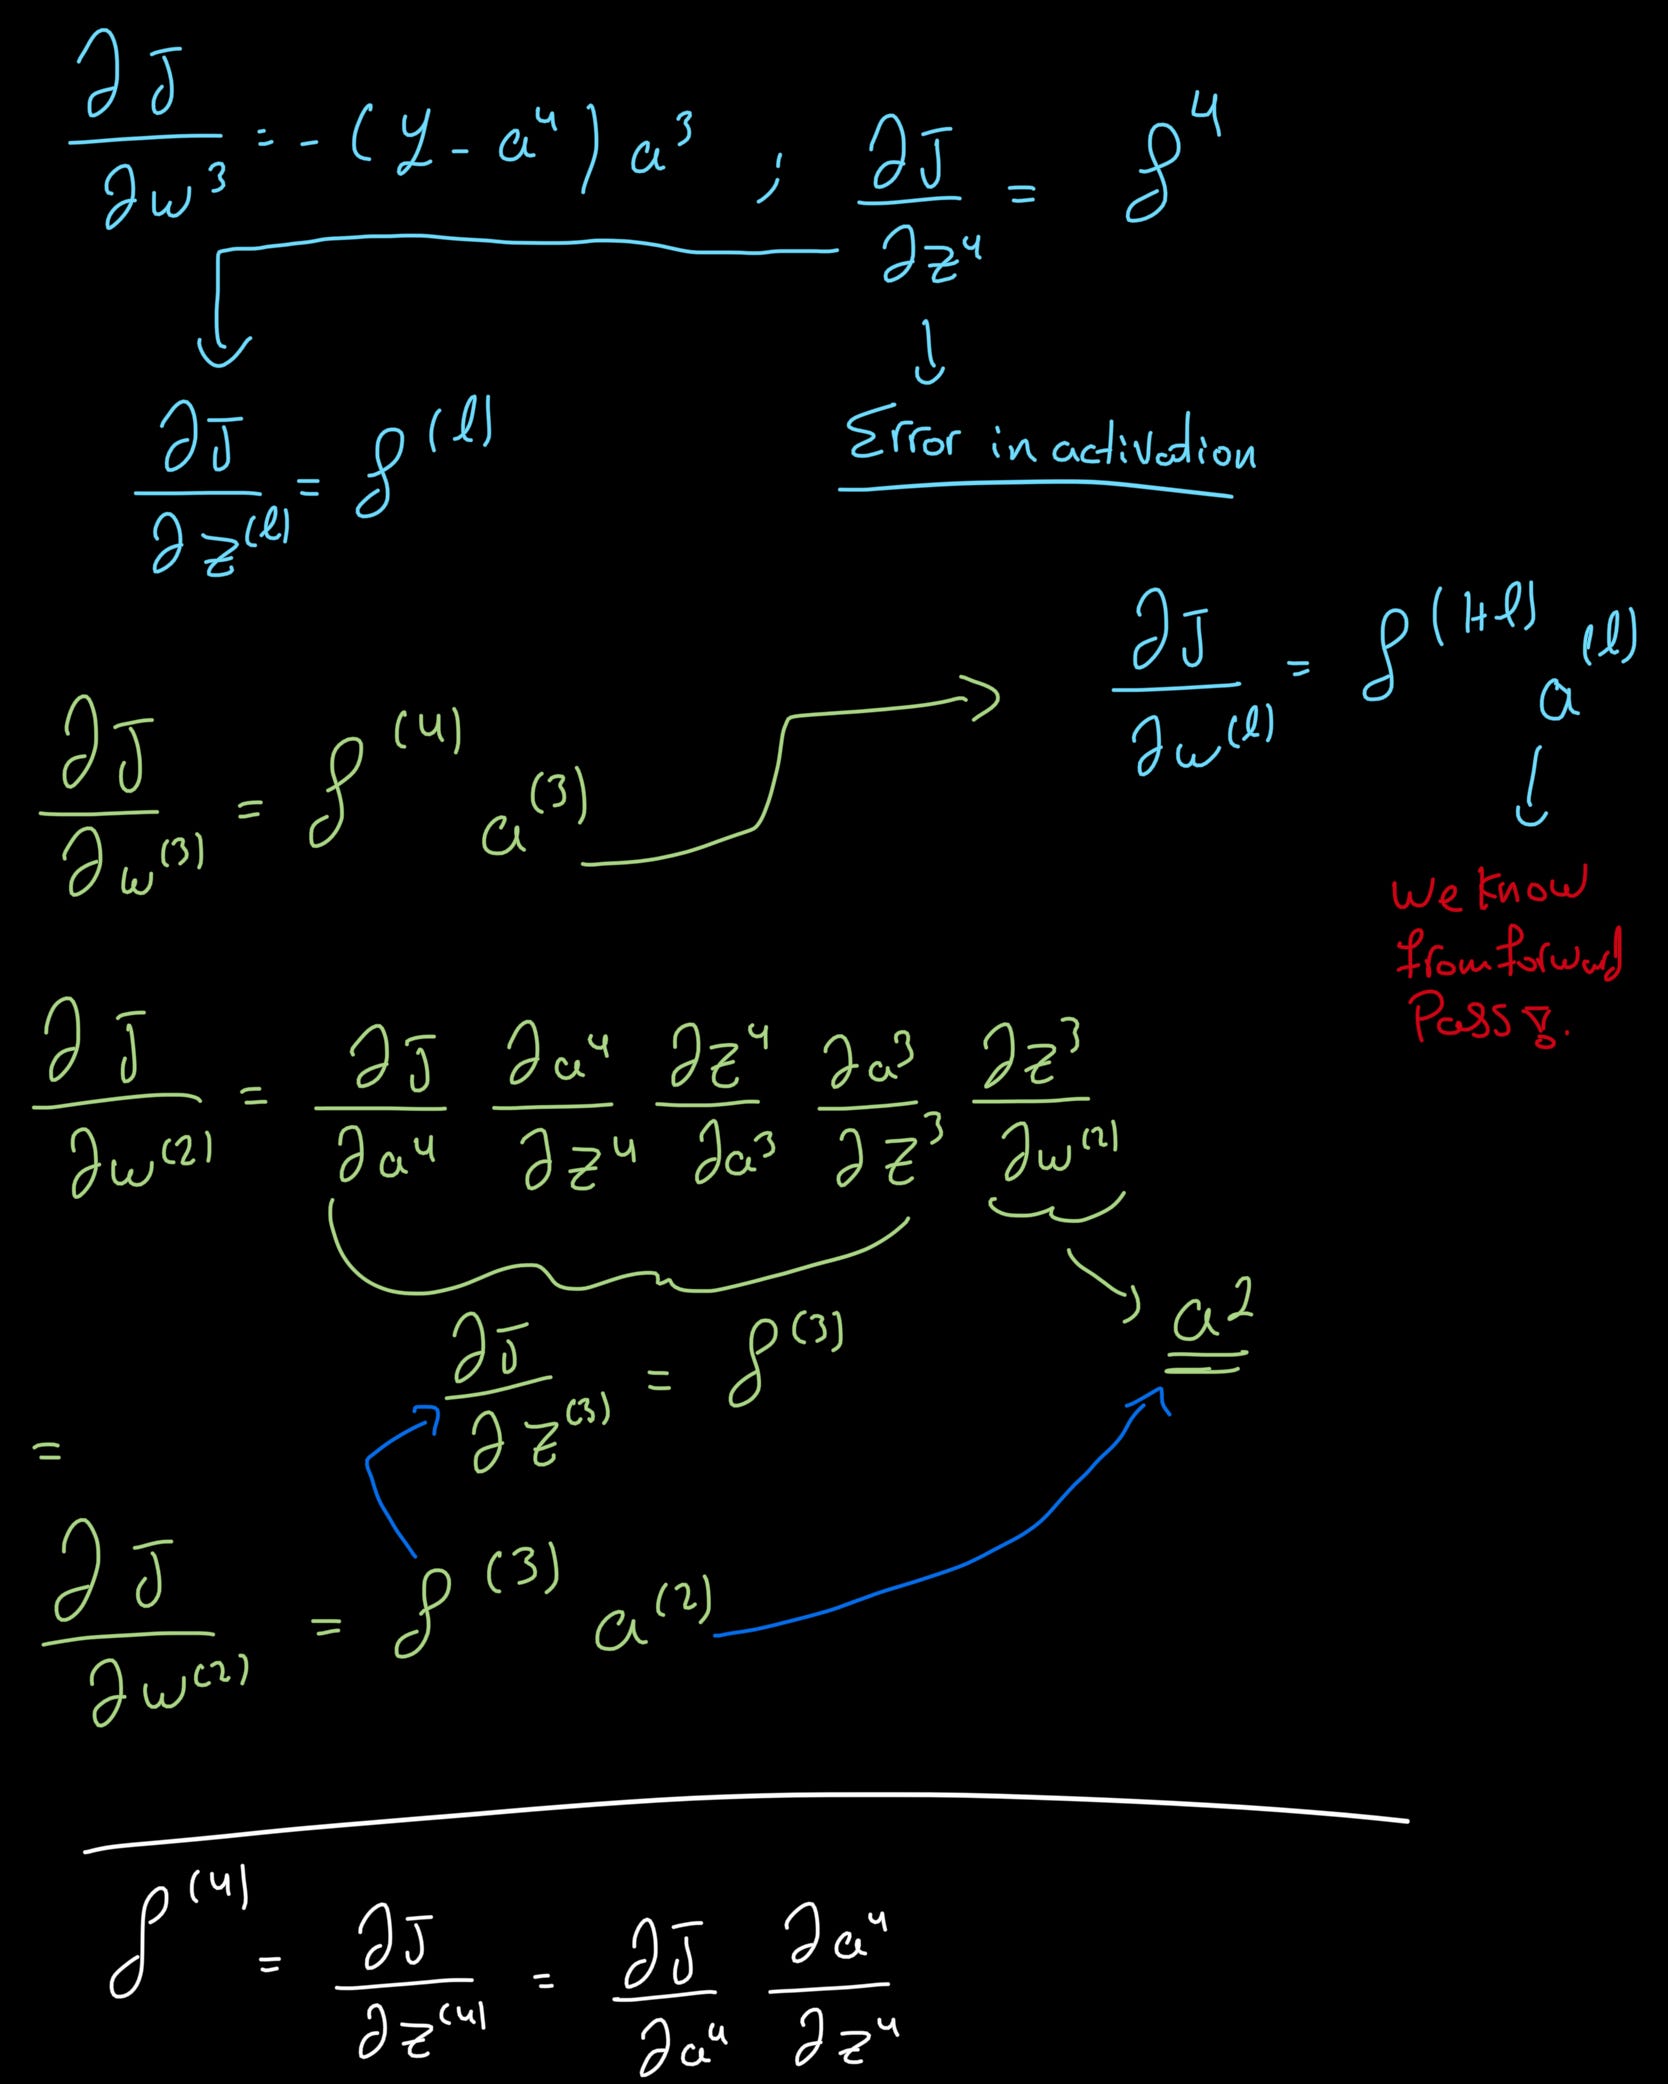 ∂J/∂w³ = -(y - a⁴) a³ ; ∂J/∂z⁴ = δ⁴
∂J/∂z⁽ˡ⁾ = δ⁽ˡ⁾
Error in activation
∂J/∂w⁽ˡ⁾ = δ⁽¹⁺ˡ⁾ a⁽ˡ⁾
∂J/∂w⁽³⁾ = δ⁽⁴⁾ a⁽³⁾
We know
from forward
Pass
∂J/∂w⁽²⁾ = ∂J/∂a⁴ ∂a⁴/∂z⁴ ∂z⁴/∂a³ ∂a³/∂z³ ∂z³/∂w⁽²⁾
∂J/∂z⁽³⁾ = δ⁽³⁾
a²
=
∂J/∂w⁽²⁾ = δ⁽³⁾ a⁽²⁾
δ⁽⁴⁾ = ∂J/∂z⁽⁴⁾ = ∂J/∂a⁴ ∂a⁴/∂z⁴